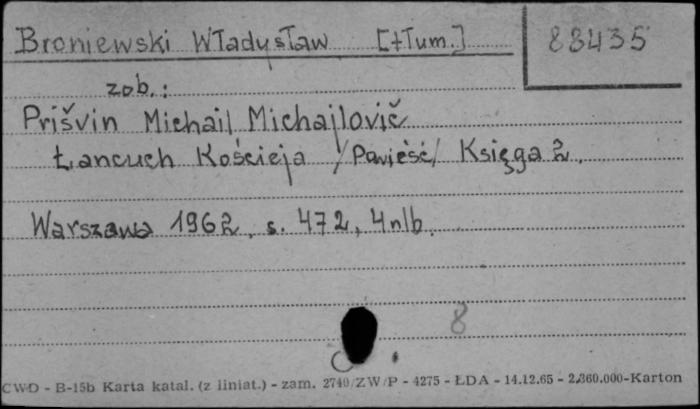 Broniewski Władysław [tłum.]
83435
zob.:
Prišvin Michail Michajlovič
Łańcuch Kościeja /Powieść/ Księga 2.
Warszawa 1962, s. 472, 4 nlb.
8
CWD - B-15b Karta katal. (z liniat.) - zam. 2740/ZW/P - 4275 - ŁDA - 14.12.65 - 2.360.000-Karton